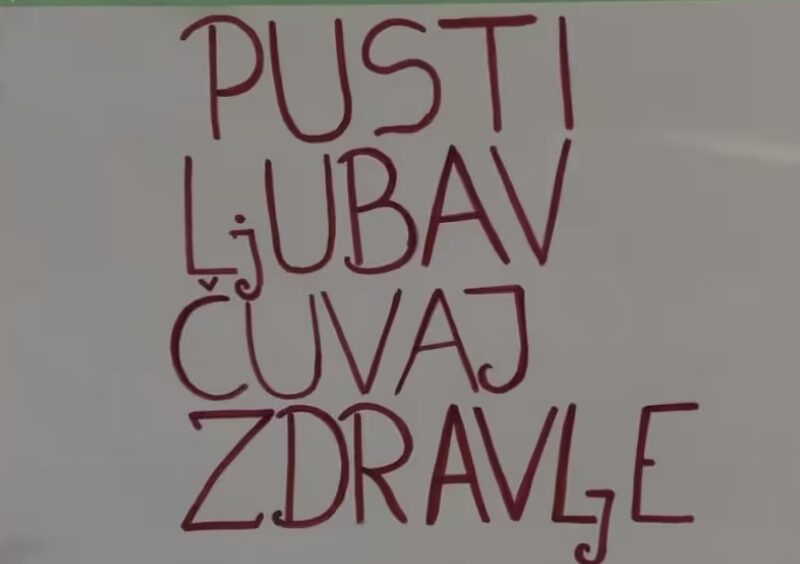 PUSTI
LjUBAV
ČUVAJ
ZDRAVLjE